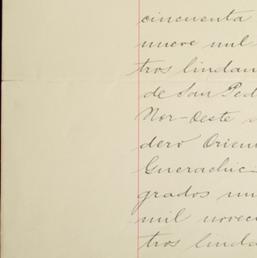 cincuenta
nueve mil
tros lindan
de San Ped
Nor-Oeste
dero Orien
Guerachic-
grados nu
mil noveci
tros linda